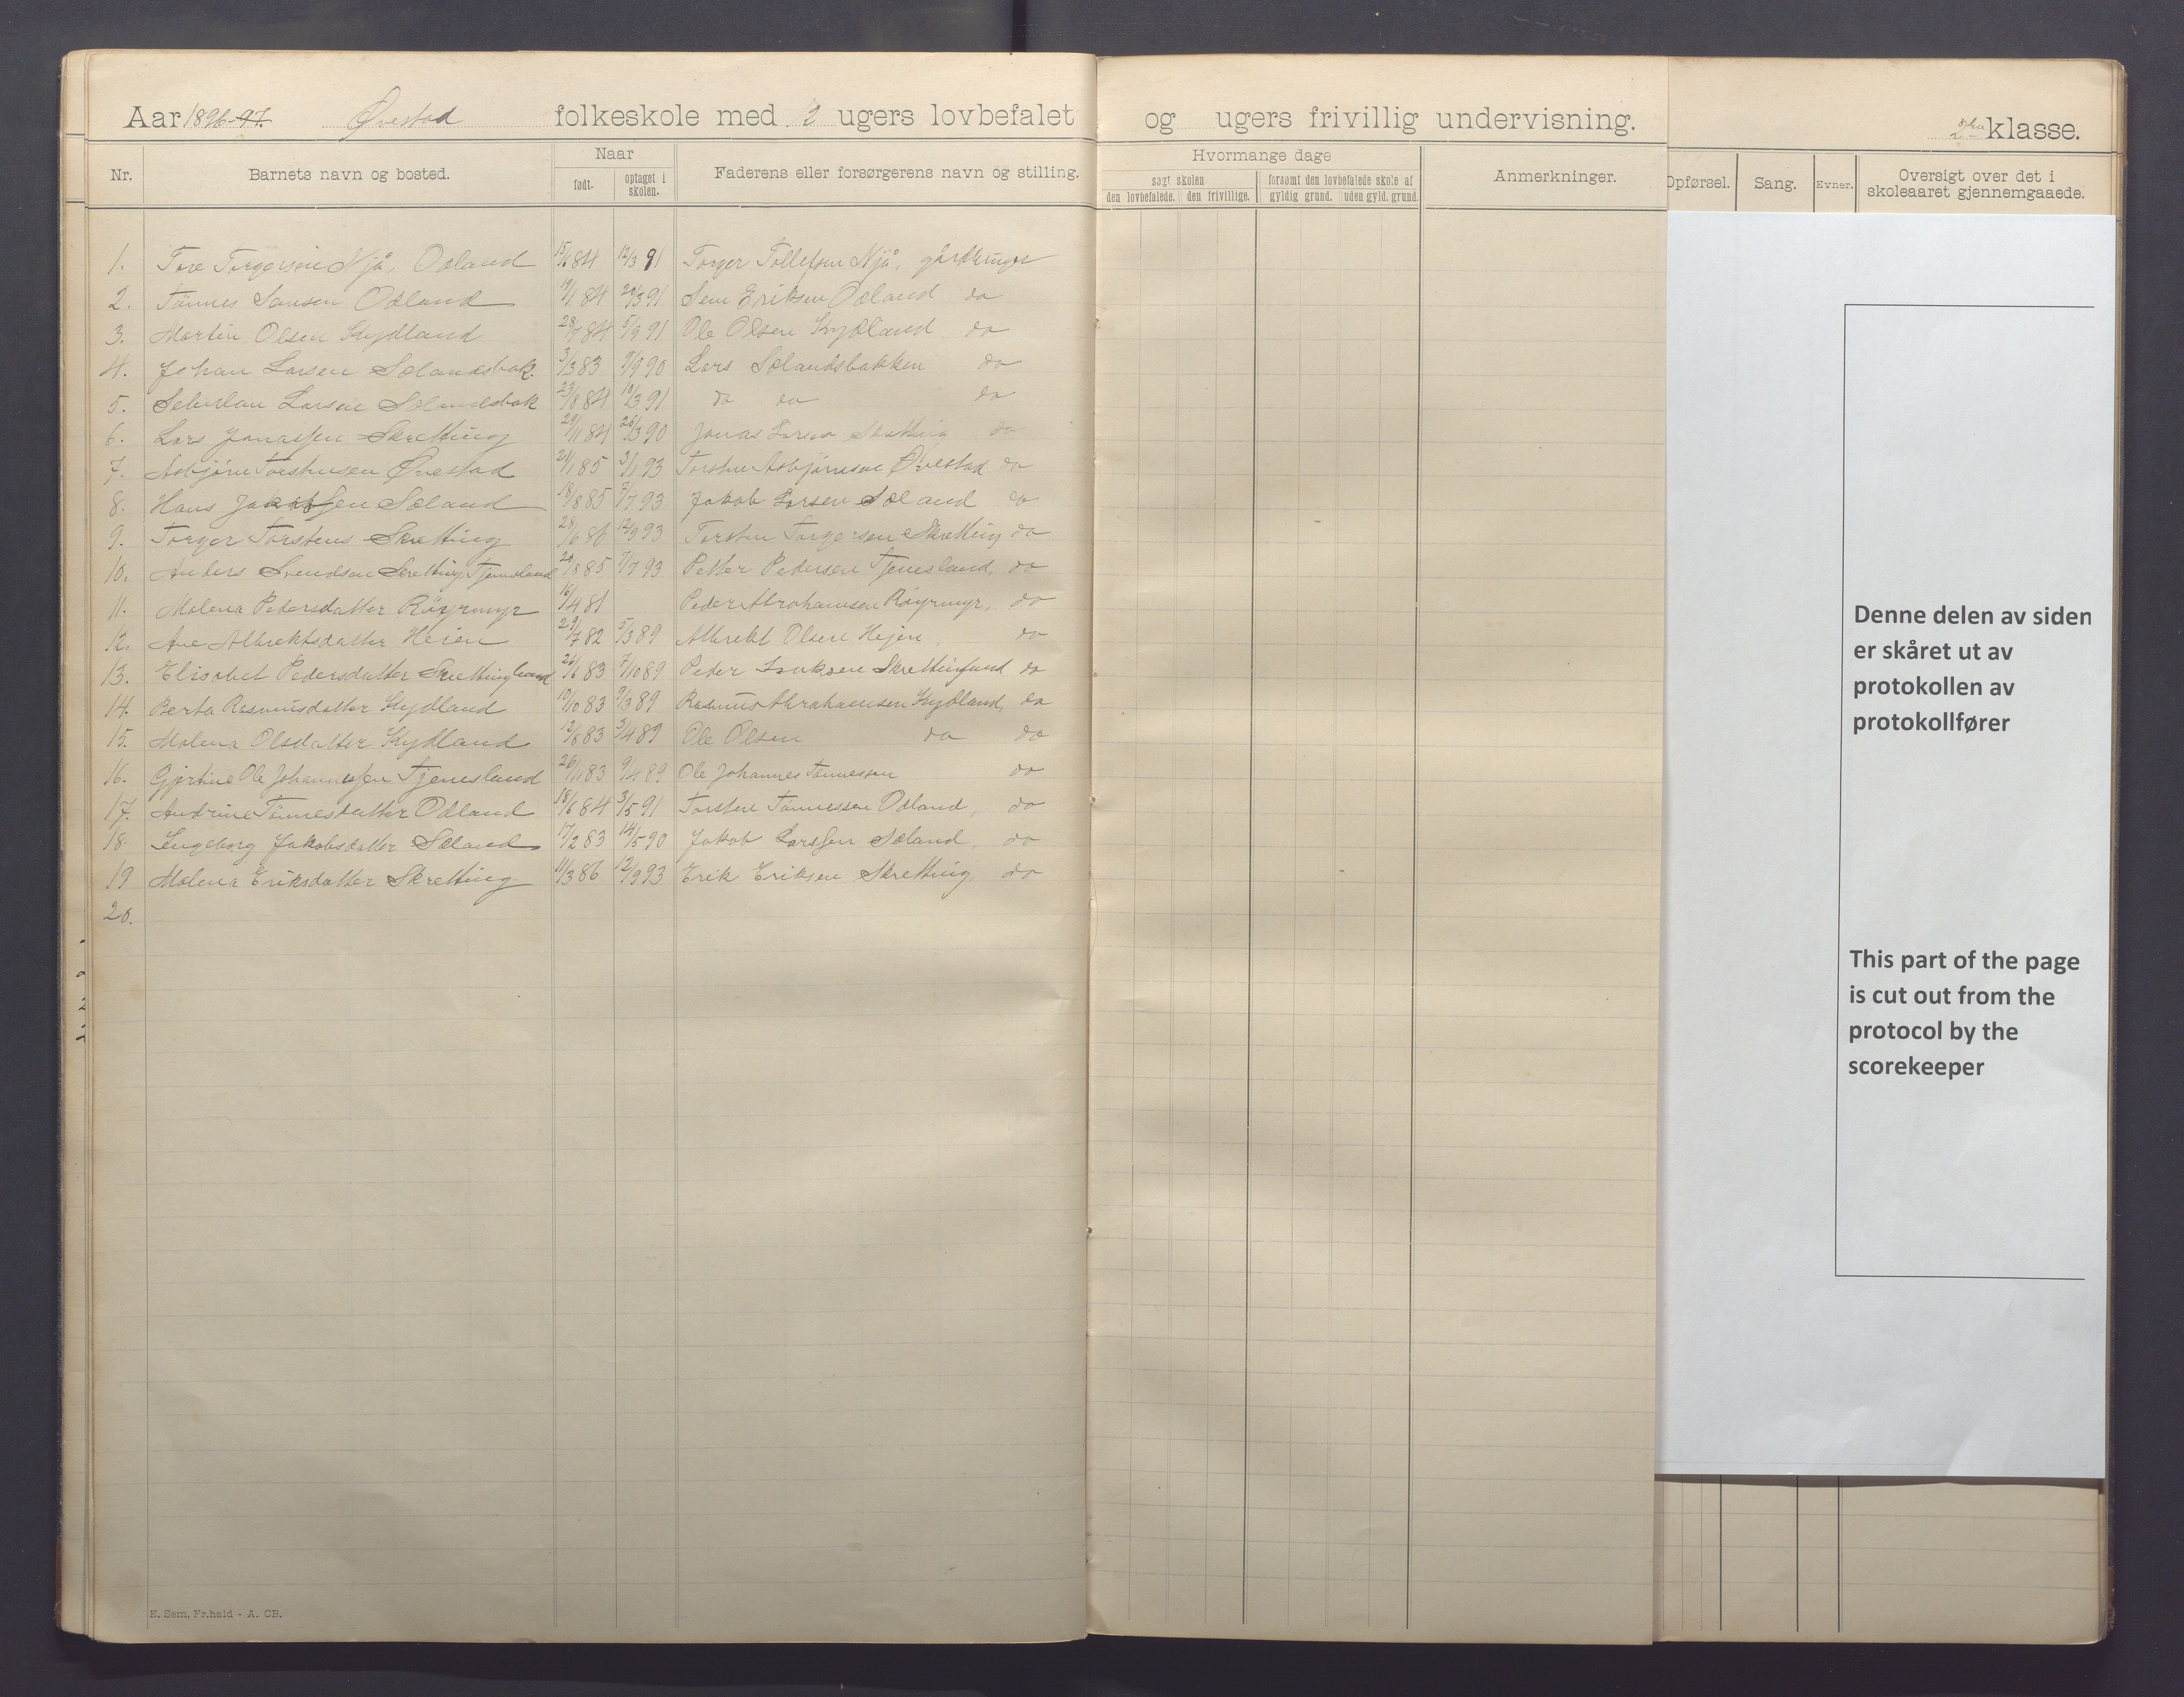 Aar 1896-97. Øvestad folkeskole med 2 ugers lovbefalet og ugers frivillig undervisning. 2den klasse.
Nr. Barnets navn og bosted. Naar født. optaget i skolen. Faderens eller forsørgerens navn og stilling. Hvormange dage søgt skolen den lovbefalede. den frivillige. forsømt den lovbefalede skole af gyldig grund. uden gyld. grund. Anmerkninger. Opførsel. Sang. Evner. Oversigt over det i skoleaaret gjennemgaaede.
1. Tore Torgersen Njå, Odland 15/6 84 12/3 91 Torger Tollefsen Njå, gårdbruger
2. Tönnes Sansen Odland 19/1 84 20/3 91 Eriksen Odland do
3. Martin Olsen Kydland 28/7 84 5/9 91 Ole Olsen Kydland do
4. Johan Larsen Sælandsbak. 3/3 83 9/9 90 Lars Sælandsbakken do
5. Larsen Sælandsbak 23/8 84 10/3 91 do do do
6. Lars Jonassen Skretting 29/11 84 26/3 90 Jonas Larsen Skretting do
7. Asbjörn Torstensen Øvestad 21/1 85 3/1 93 Torsten Asbjörnsen Øvestad do
8. Hans Jakobsen Sæland 18/8 85 7/7 93 Jakob Larsen Sæland do
9. Torger Torstens Skretting 28/6 86 12/9 93 Torsten Torgersen Skretting do
10. Anders Svendsen Skretting, Tjensland 20/8 85 7/7 93 Petter Pedersen Tjensland, do
11. Malena Pedersdatter Röyrmyr 16/4 81 Peder Abrahamsen Röyrmyr, do
12. Ane Albrektsdatter Heien 29/7 82 5/3 89 Albrekt Olsen Hejen do
13. Elisabet Pedersdatter Skrettingland 26/6 83 7/10 89 Peder Isaksen Skrettingland do
14. Berta Rasmusdatter Kydland 10/10 83 9/3 89 Rasmus Abrahamsen Kydland, do
15. Malena Olsdatter Kydland 12/8 83 3/4 89 Ole Olsen do do
16. Gjertine Ole Johannessen Tjensland 26/11 83 9/4 89 Ole Johannes Tönnessen do
17. Andrine Tönnesdatter Odland 18/6 84 3/5 91 Torsten Tönnessen Odland, do
18. Ingeborg Jakobsdatter Sæland 17/2 83 14/5 90 Jakob Larssen Sæland, do
19 Malena Eriksdatter Skretting 11/3 86 12/9 93 Erik Eriksen Skretting, do
20.
E. Sem, Fr.hald - A. CB.
Denne delen av siden
er skåret ut av
protokollen av
protokollfører
This part of the page
is cut out from the
protocol by the
scorekeeper